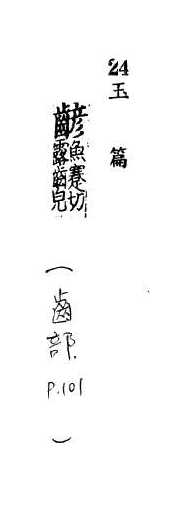 24 玉篇
齴 魚蹇切
露齒皃
(齒部. P.101)